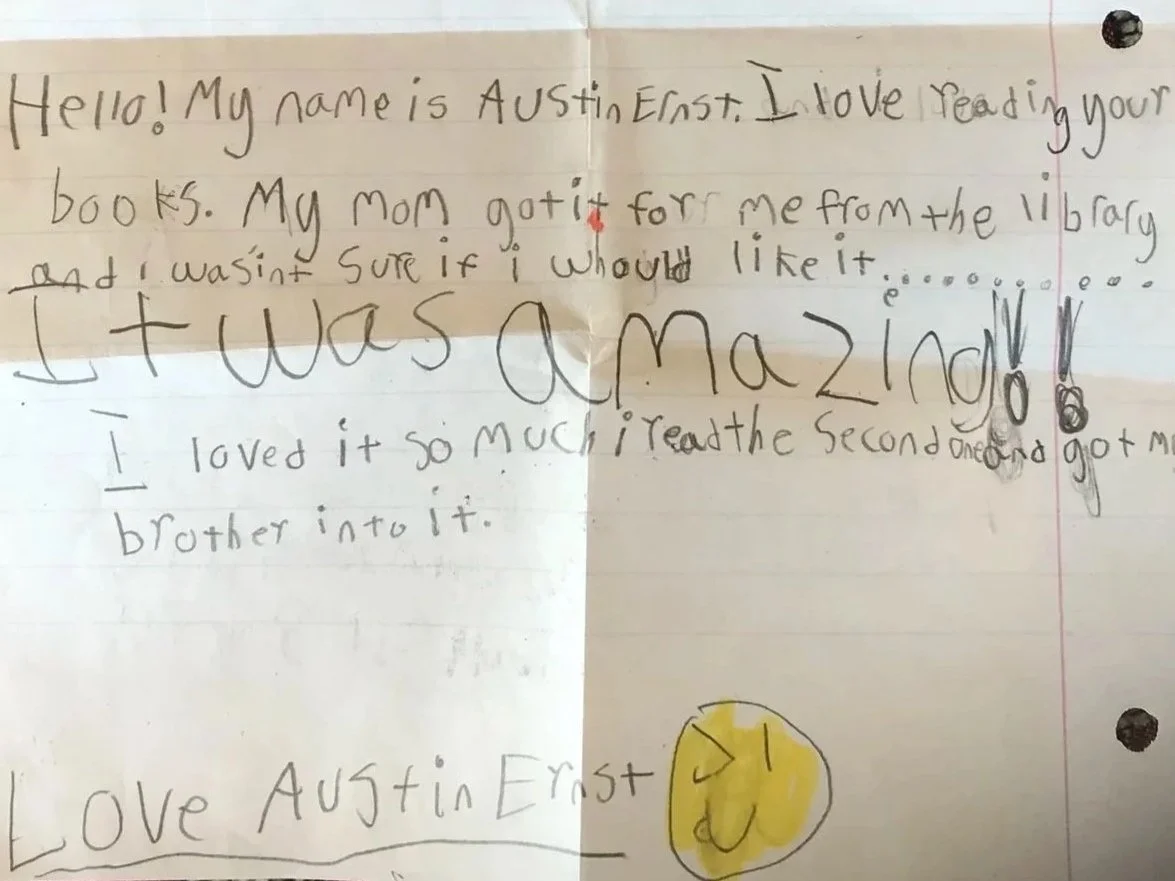 Hello! My name is Austin Ernst. I love reading your
books. My mom got it for me from the library
and i wasint sure if i whould like it..............
It was amazing!!
I loved it so much i read the second one and got my
brother into it.
Love Austin Ernst